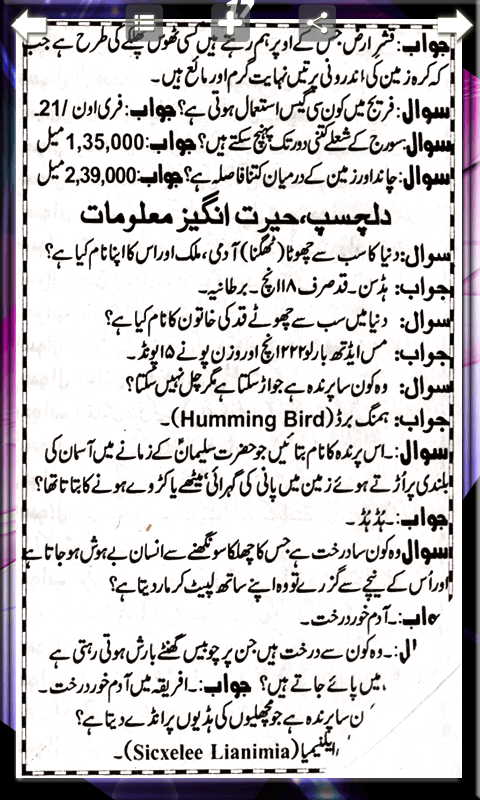 17
جواب: قشر ارض جس کے اوپر ہم رہتے ہیں کسی ٹھوس چھلکے کی طرح ہے جب
کہ کرہ زمین کی اندرونی پرتیں نہایت گرم اور مائع ہیں۔
سوال: فریج میں کون سی گیس استعمال ہوتی ہے؟ جواب: فری اون /21۔
سوال: سورج کے شعلے کتنی دور تک پہنچ سکتے ہیں؟ جواب: 1,35,000 میل
سوال: چاند اور زمین کے درمیان کتنا فاصلہ ہے؟ جواب: 2,39,000 میل
دلچسپ، حیرت انگیز معلومات
سوال: دنیا کا سب سے چھوٹا (ٹھگنا) آدمی، ملک اور اس کا اپنا نام کیا ہے؟
جواب: ہڈسن۔ قد صرف ۱۱۸ انچ۔ برطانیہ۔
سوال: دنیا میں سب سے چھوٹے قد کی خاتون کا نام کیا ہے؟
جواب: مس ایڈتھ بارلو ۲۲۲ انچ اور وزن پونے ۱۵ پونڈ۔
سوال: وہ کون سا پرندہ ہے جو اڑ سکتا ہے مگر چل نہیں سکتا؟
جواب: ہمنگ برڈ (Humming Bird)۔
سوال:۔ اس پرندہ کا نام بتائیں جو حضرت سلیمانؑ کے زمانے میں آسمان کی
بلندی پر اڑتے ہوئے زمین میں پانی کی گہرائی میٹھے یا کڑوے ہونے کا بتاتا تھا؟
جواب:۔ ہد ہد۔
سوال وہ کون سا درخت ہے جس کا چھلکا سونگھنے سے انسان بے ہوش ہو جاتا ہے
اور اُس کے نیچے سے گزرے تو وہ اپنے ساتھ لپیٹ کر مار دیتا ہے؟
واب:۔ آدم خور درخت۔
ال:۔ وہ کون سے درخت ہیں جن پر چوبیس گھنٹے بارش ہوتی رہتی ہے
میں پائے جاتے ہیں؟ جواب:۔ افریقہ میں آدم خور درخت۔
ن سا پرندہ ہے جو مچھلیوں کی ہڈیوں پر انڈے دیتا ہے؟
(Sicxelee Lianimia)۔